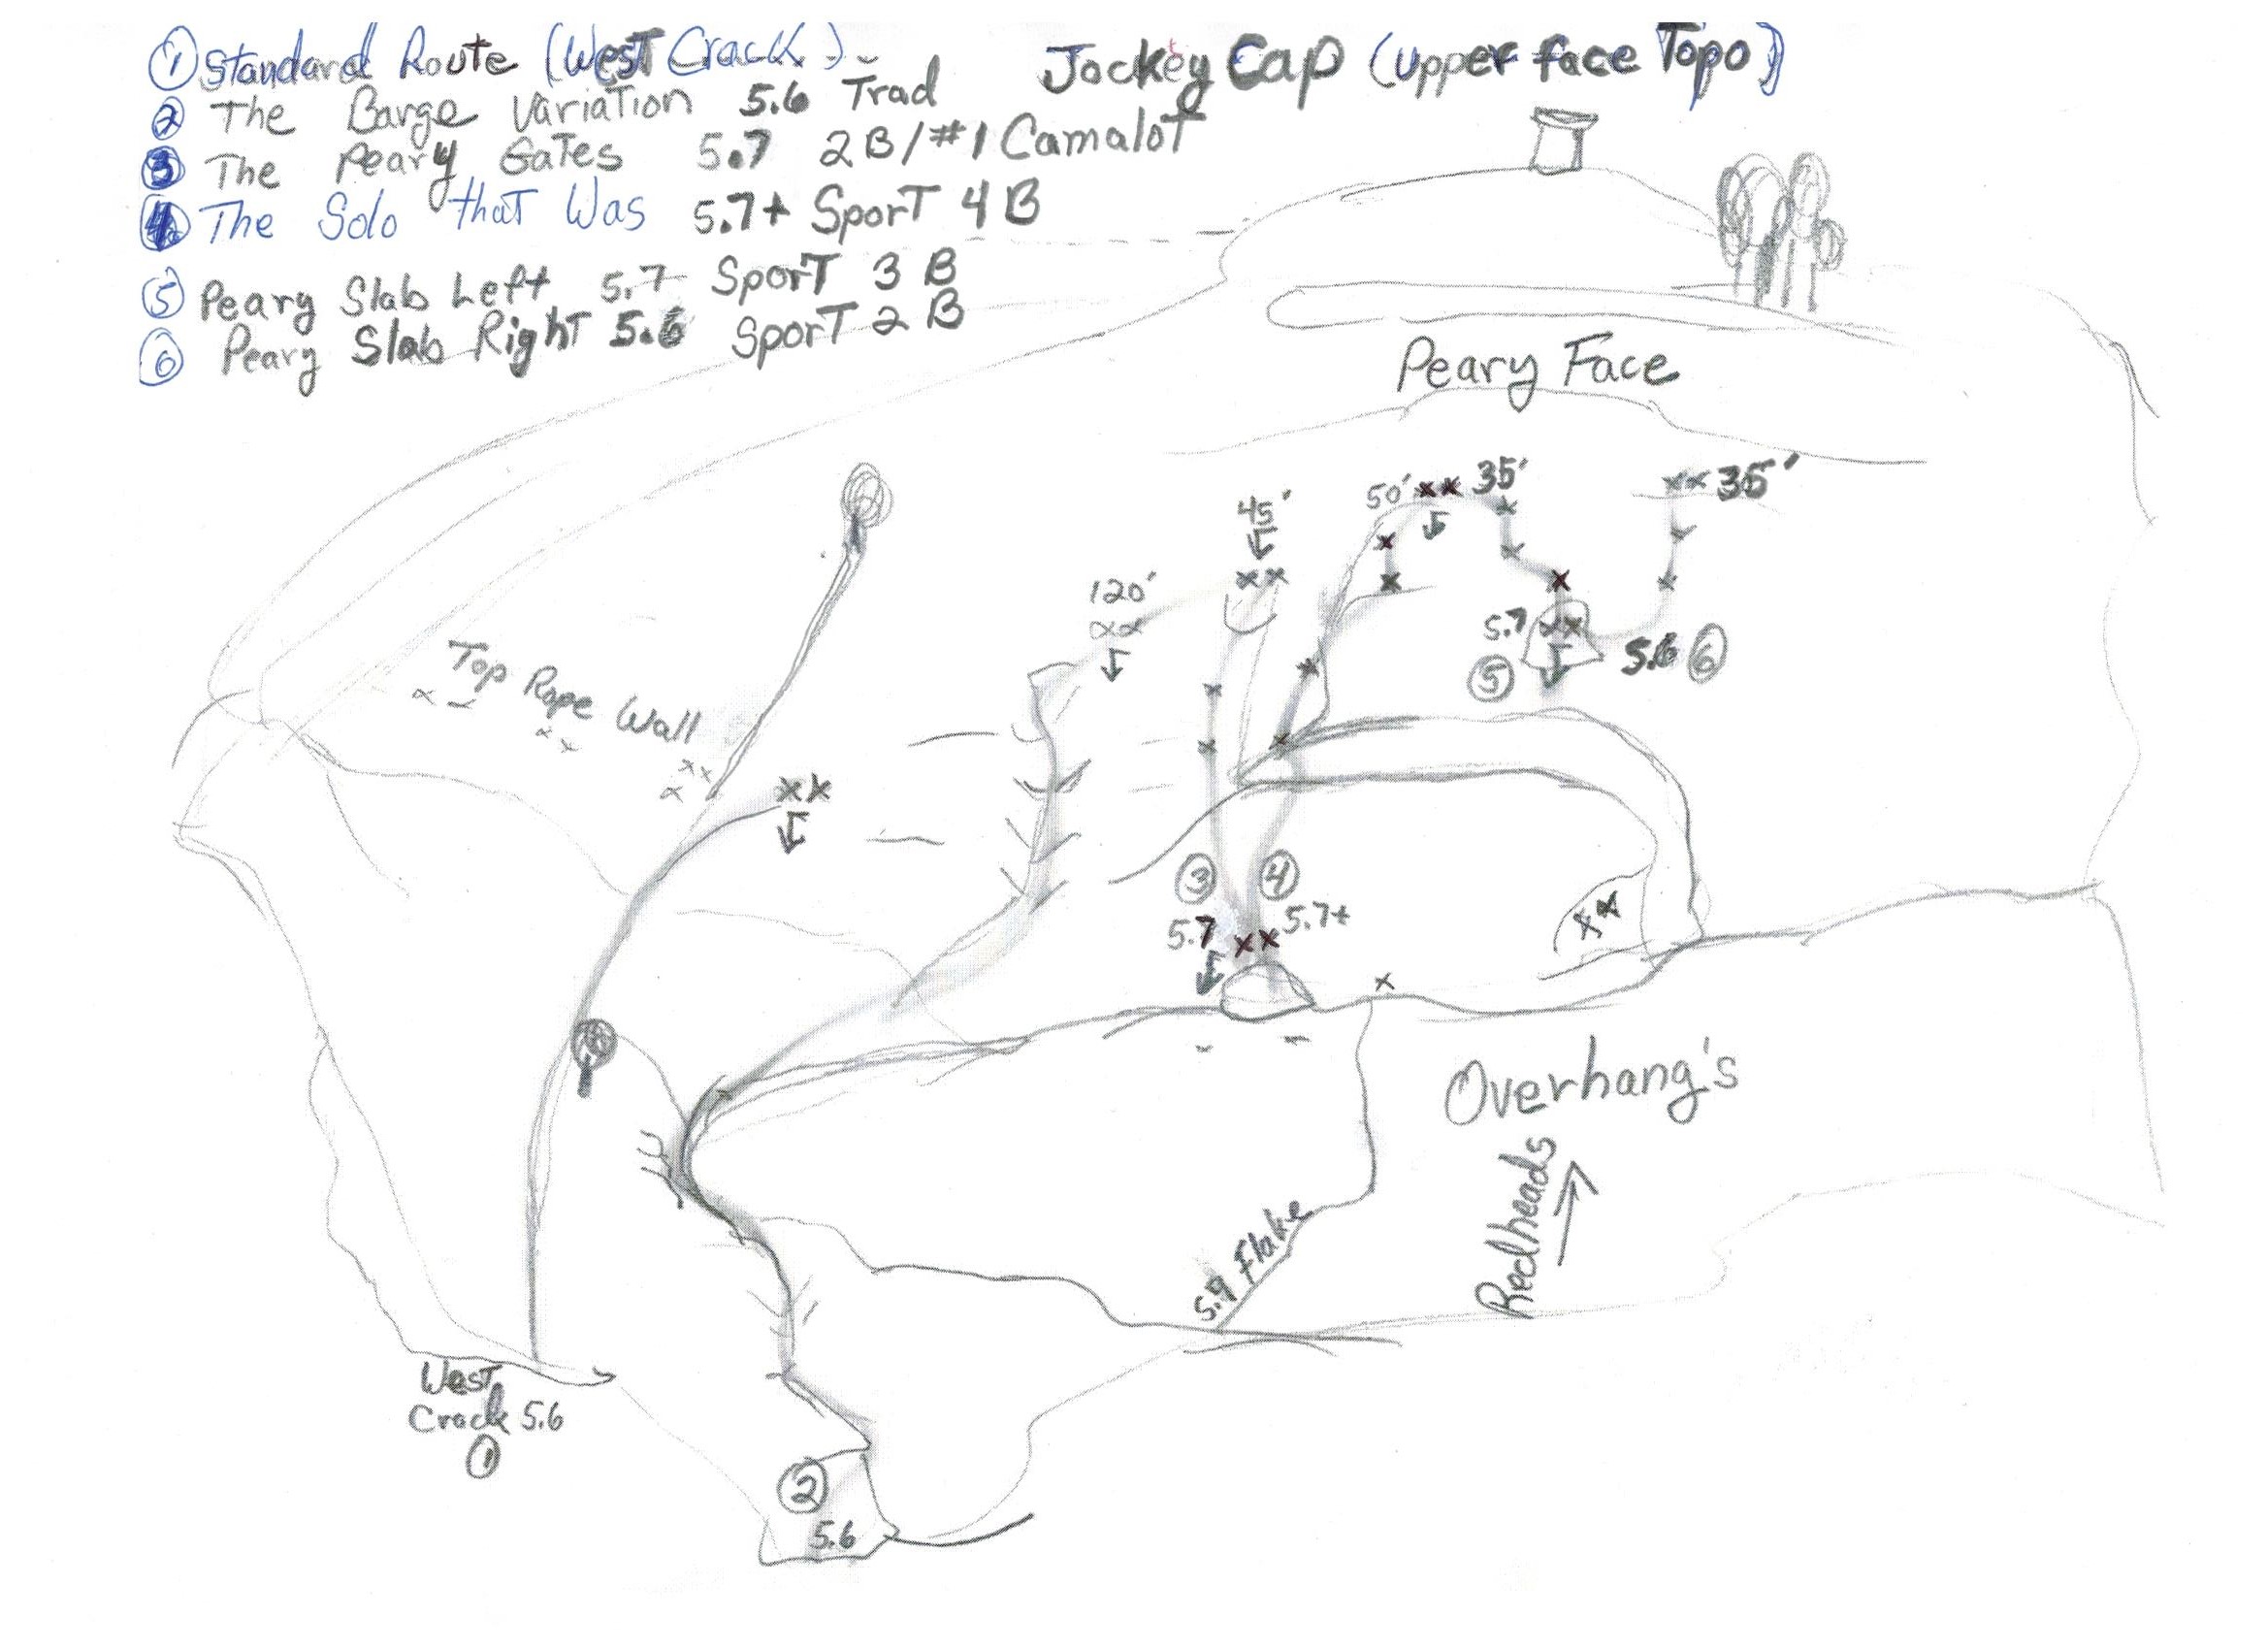 ① Standard Route (West Crack)
Jockey Cap (Upper face Topo)
② The Barge Variation 5.6 Trad
③ The Peary Gates 5.7 2B/#1 Camalot
④ The Solo that Was 5.7+ Sport 4B
⑤ Peary Slab Left 5.7 Sport 3 B
⑥ Peary Slab Right 5.6 Sport 2 B
Peary Face
50' xx 35'
xx 35'
45'
xx
120'
xx
5.7 xx
⑤
5.6 ⑥
Top Rope Wall
xx
③ ④
5.7 xx 5.7+
xx
Overhang's
Redheads
5.9 Flake
West
Crack 5.6
①
②
5.6